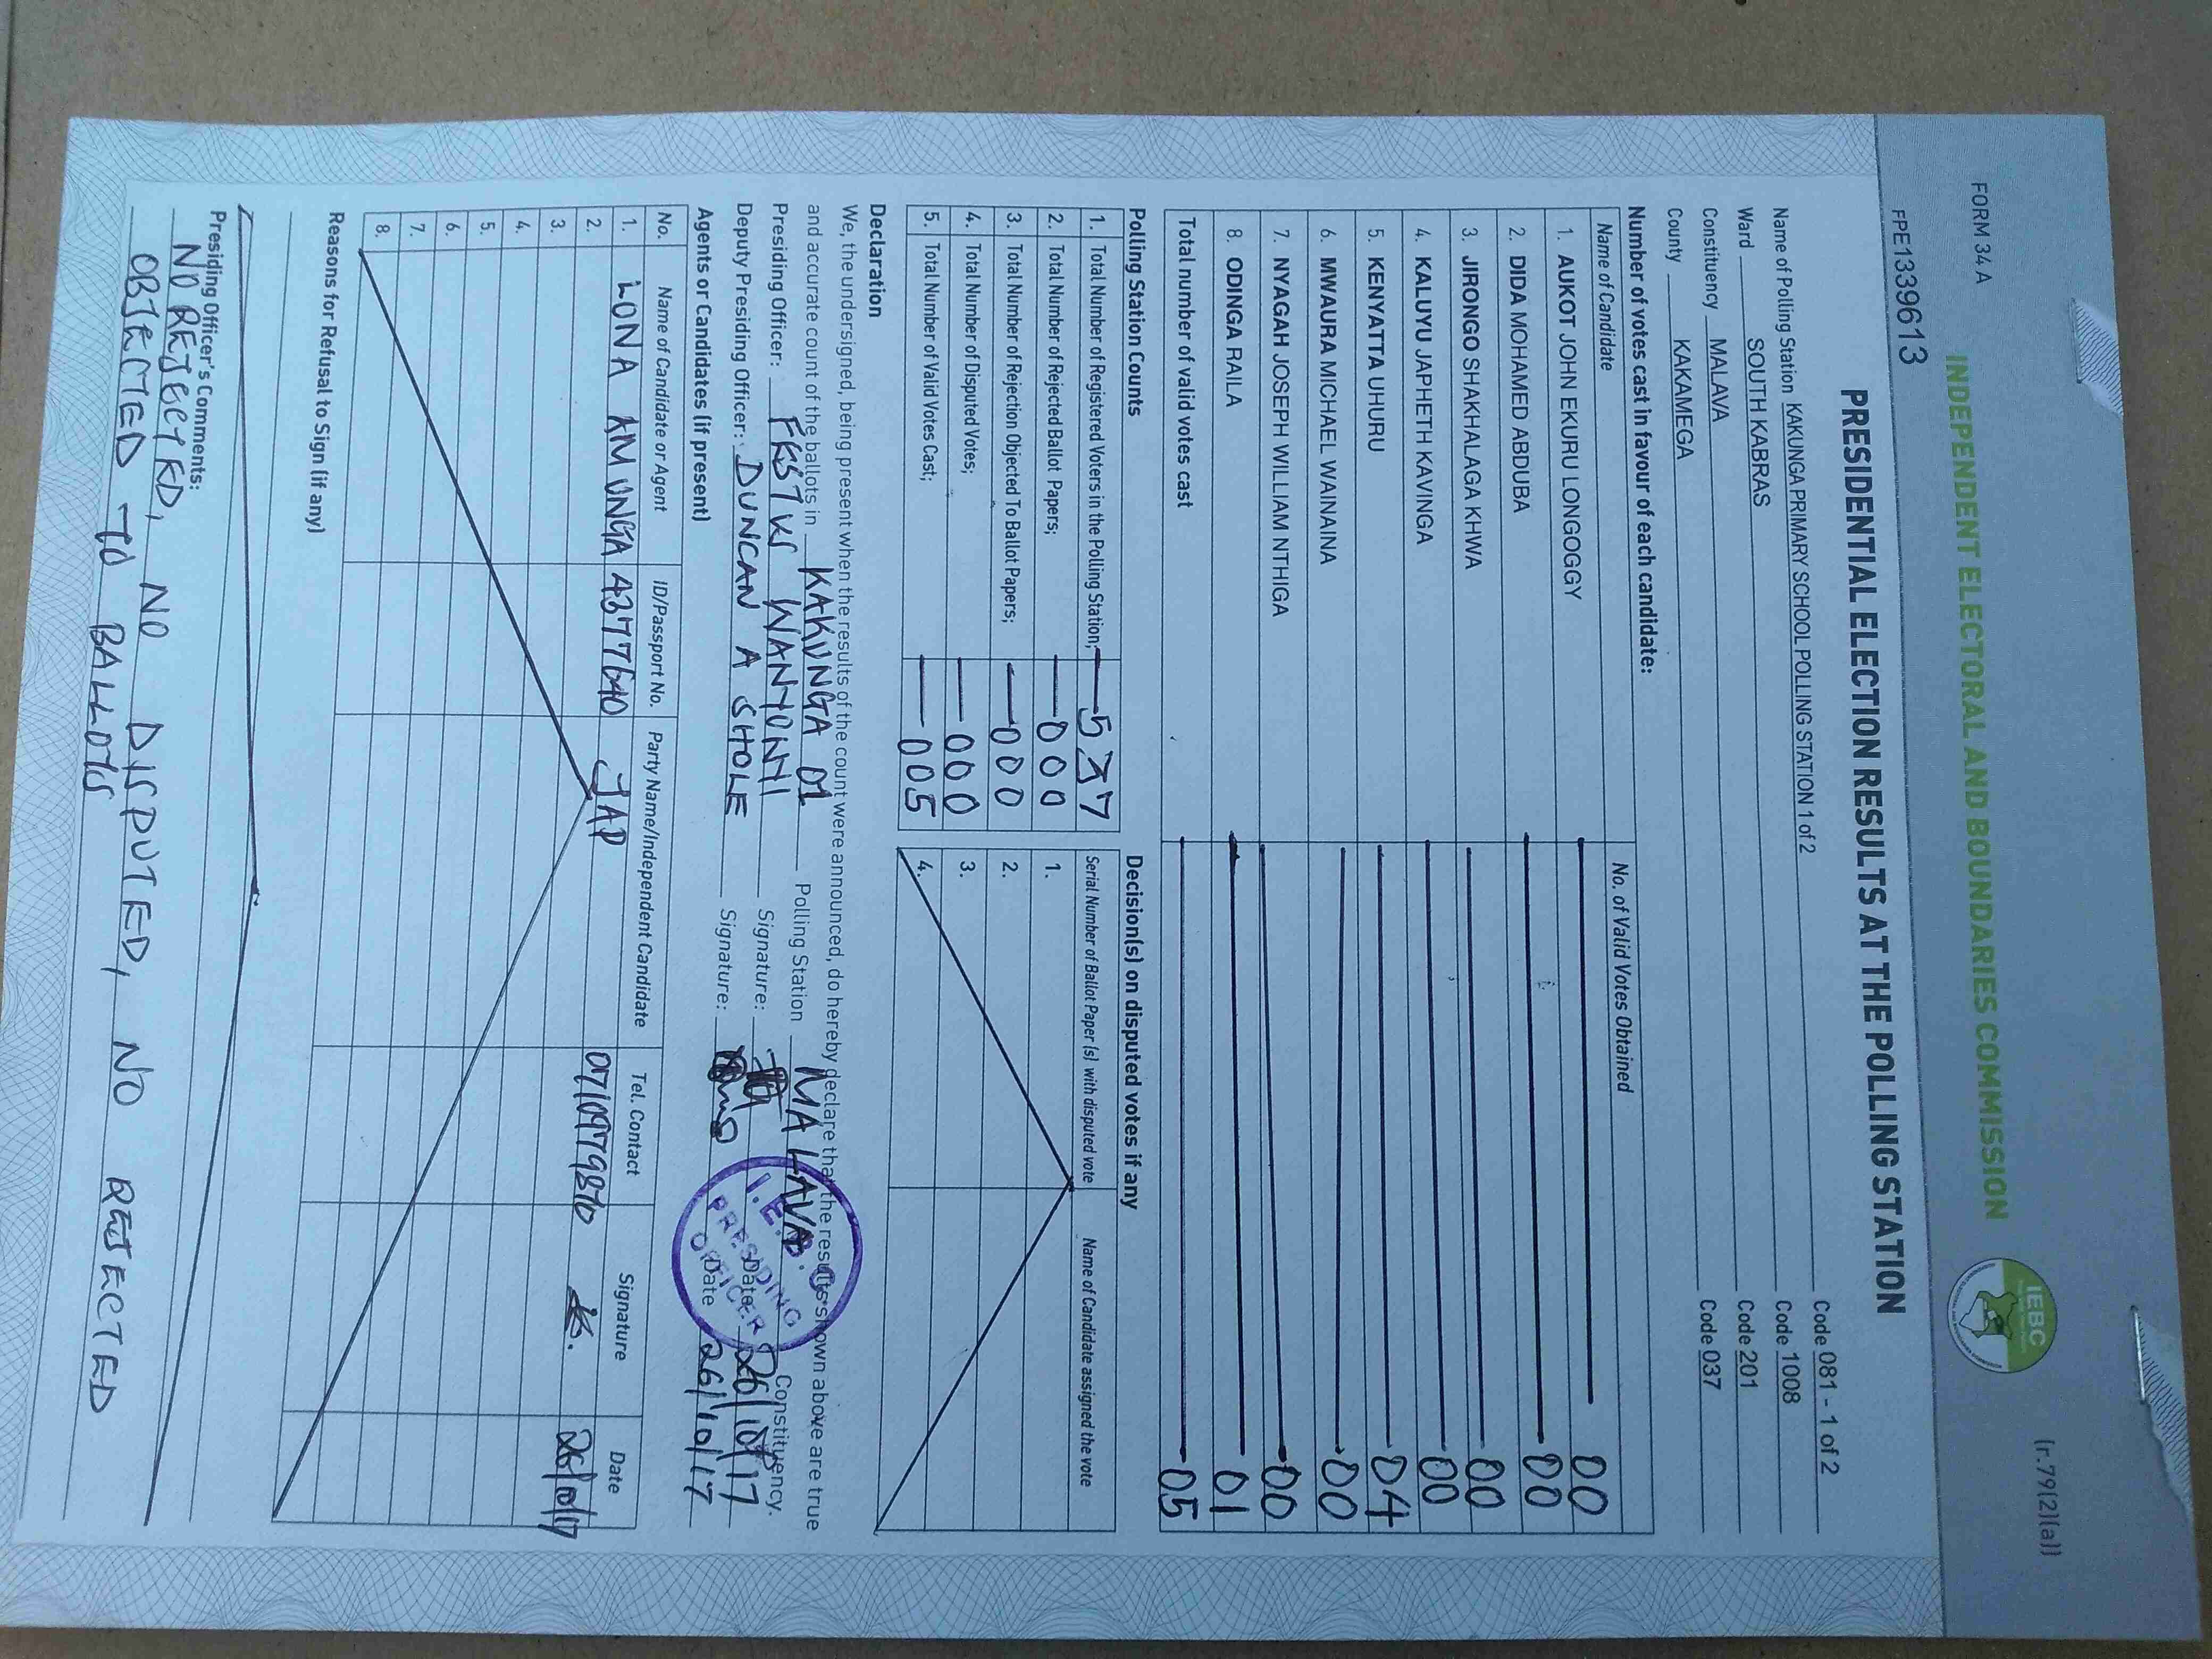 FORM 34 A
(r.79(2)(a))
INDEPENDENT ELECTORAL AND BOUNDARIES COMMISSION
IEBC
FPE1339613
PRESIDENTIAL ELECTION RESULTS AT THE POLLING STATION
Name of Polling Station KAKUNGA PRIMARY SCHOOL POLLING STATION 1 of 2 Code 081 - 1 of 2
Ward SOUTH KABRAS Code 1008
Constituency MALAVA Code 201
County KAKAMEGA Code 037
Number of votes cast in favour of each candidate:
Name of Candidate No. of Valid Votes Obtained
1. AUKOT JOHN EKURU LONGOGGY 00
2. DIDA MOHAMED ABDUBA 00
3. JIRONGO SHAKHALAGA KHWA 00
4. KALUYU JAPHETH KAVINGA 00
5. KENYATTA UHURU 04
6. MWAURA MICHAEL WAINAINA 00
7. NYAGAH JOSEPH WILLIAM NTHIGA 00
8. ODINGA RAILA 01
Total number of valid votes cast 05
Polling Station Counts
1. Total Number of Registered Voters in the Polling Station;
2. Total Number of Rejected Ballot Papers; 000
3. Total Number of Rejection Objected To Ballot Papers; 000
4. Total Number of Disputed Votes; 000
5. Total Number of Valid Votes Cast; 005
Decision(s) on disputed votes if any
Serial Number of Ballot Paper (s) with disputed vote Name of Candidate assigned the vote
1.
2.
3.
4.
Declaration
We, the undersigned, being present when the results of the count were announced, do hereby declare that the results shown above are true
and accurate count of the ballots in KAKUNGA 01 Polling Station MALAVA Constituency.
Presiding Officer: WANYONYI Signature: Date 26/10/17
Deputy Presiding Officer: DUNCAN A SHOLE Signature: Date 26/10/17
I.E.B.C
PRESIDING
OFFICER
Agents or Candidates (if present)
No. Name of Candidate or Agent ID/Passport No. Party Name/Independent Candidate Tel. Contact Signature Date
1. LONA AMUNGA 4377640 JAP 26/10/17
2.
3.
4.
5.
6.
7.
8.
Reasons for Refusal to Sign (if any)
Presiding Officer's Comments:
NO REJECTED, NO DISPUTED, NO REJECTED
OBJECTED TO BALLOTS